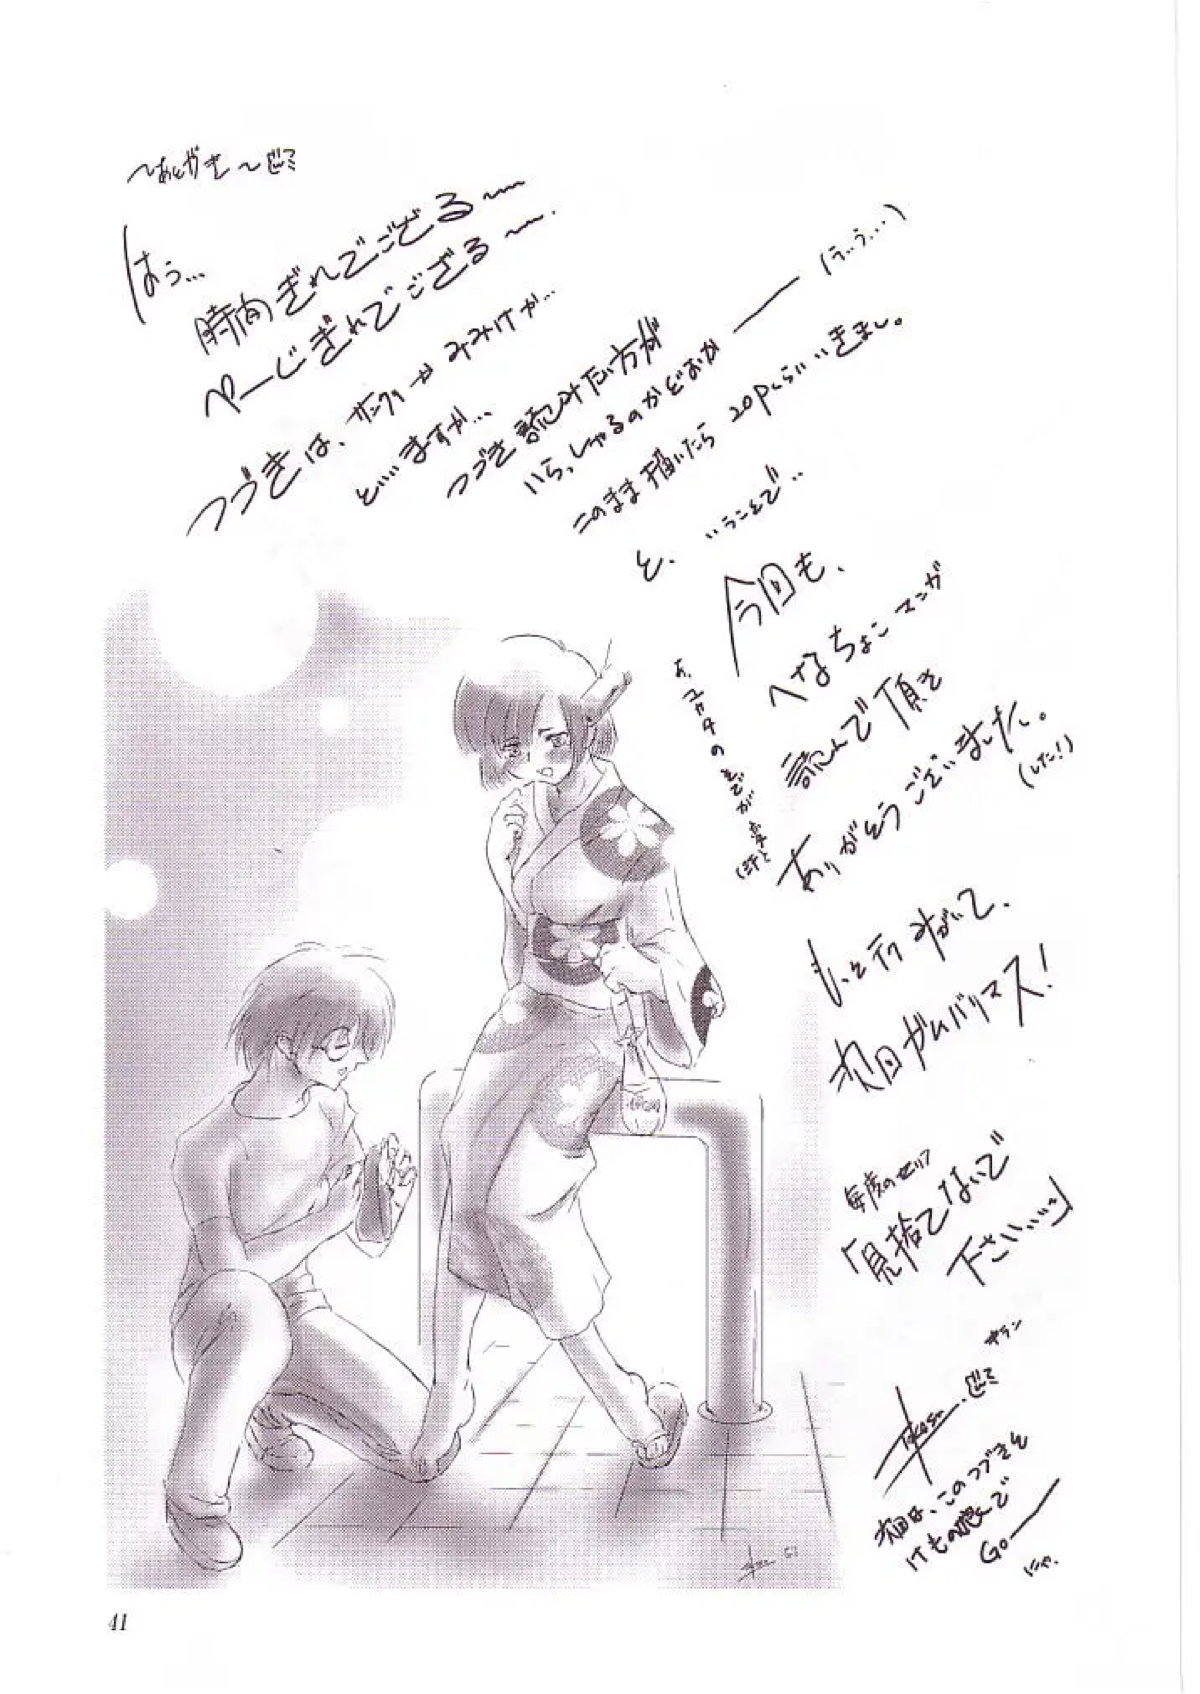 ～あとがき～
はぅ…
時間ぎれでござる～
ぺーじぎれでござる～
つづきは、サンクリかみみけか…
と…ますか…
つづき読みたい方が
いらっしゃるのかどおか――(うぅ…)
このまま描いたら 20Pくらいいきまし。
と、いうことで‥
今回も、
へなちょこマンガ
読んで頂き
ありがとうございました。
(した!)
あ、ユカタのそでが
(汗)
もっとテクみがいて、
次回ガムバリマス!
毎度のセリフ
「見捨てないで
下さい……」
次回は、このつづきと
けもの
GO――
にゃ。
41